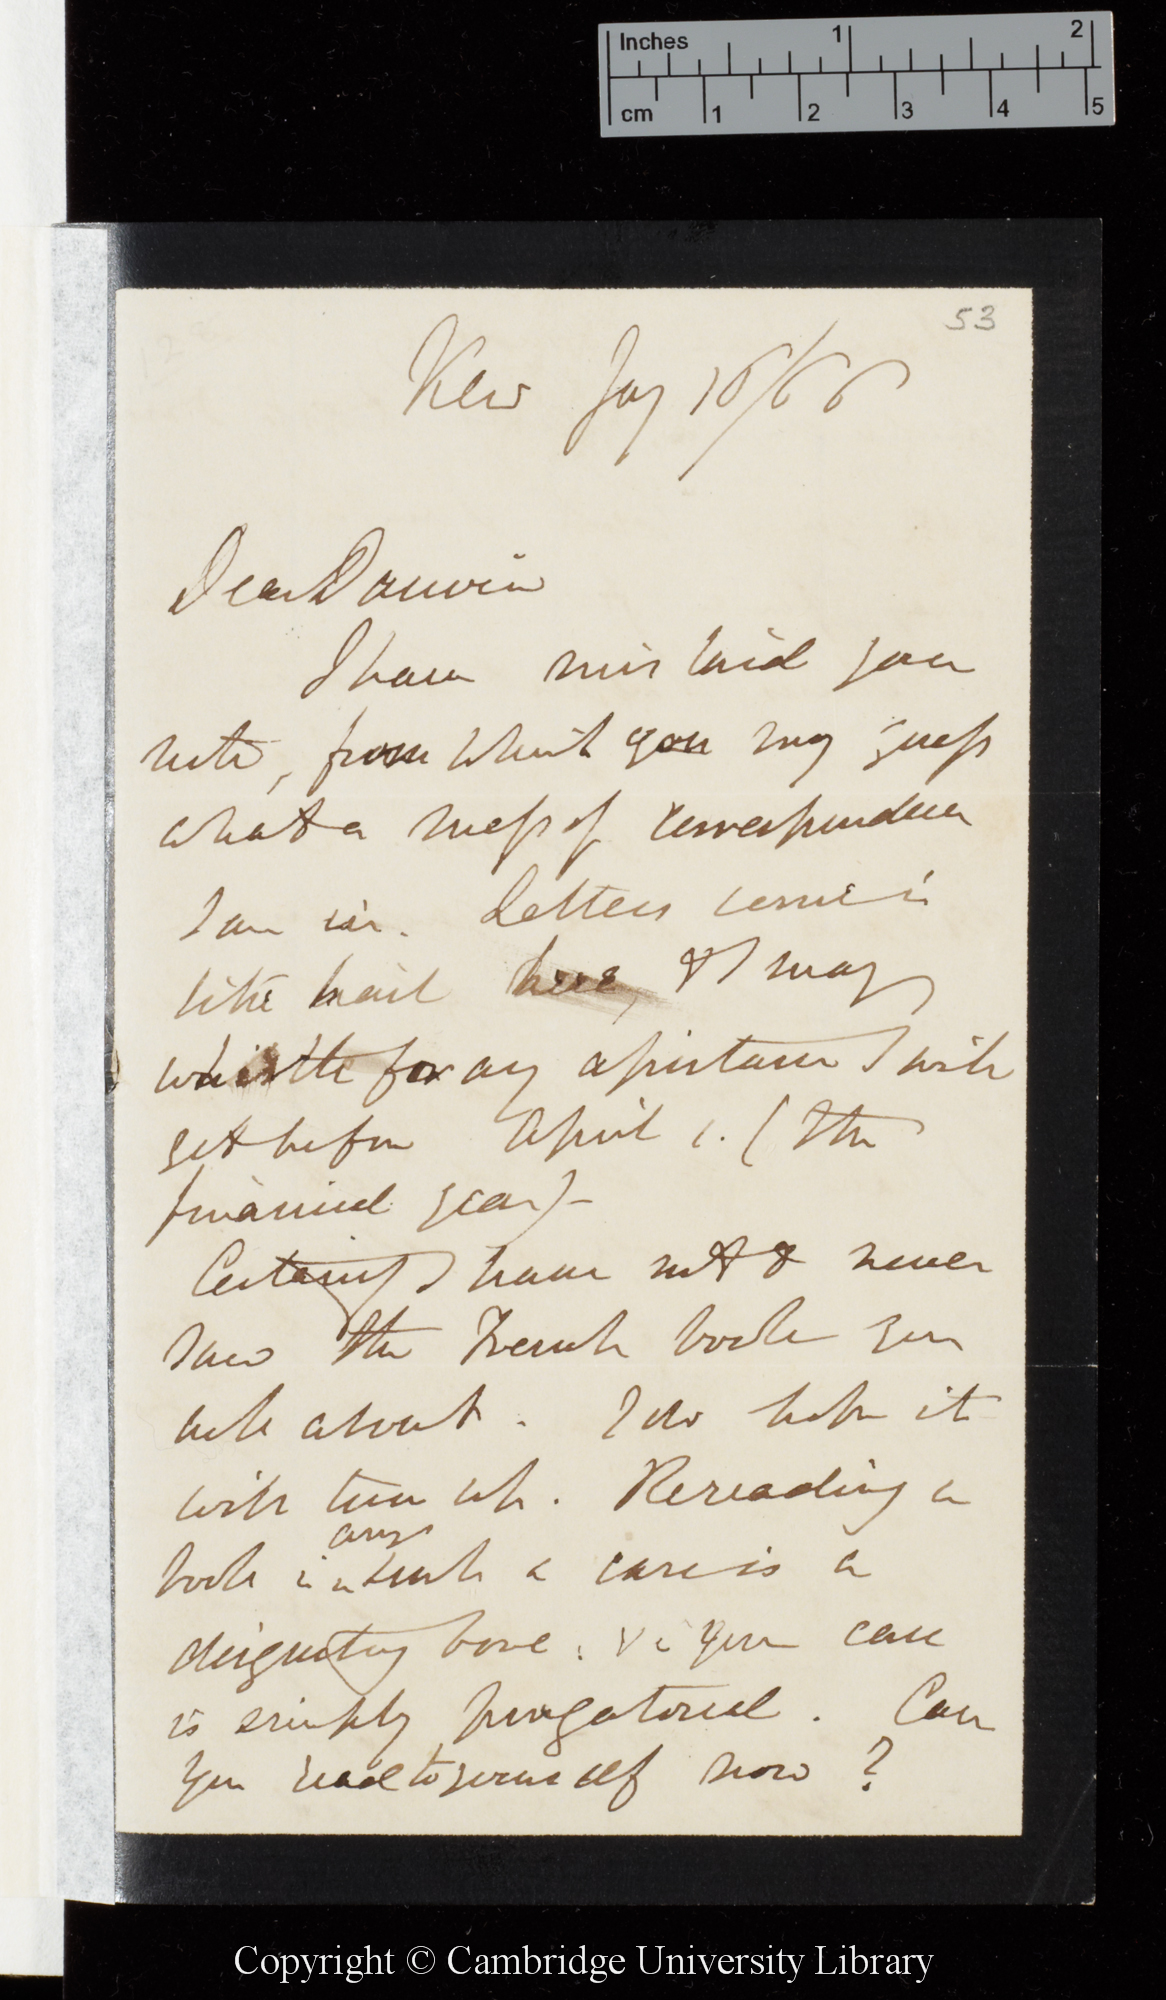 Inches 1 2
cm 1 2 3 4 5
53
Kew Jay 16/66
Dear Darwin
I have mis laid your
note, from which you may guess
what a mess of correspondence
I am in. Letters come in
like hail here, & I may
whistle for any assistance I will
get before April 1. (The
financial year)—
Certainly I have not & never
saw the French book you
ask about. I do hope it
will turn up. Rereading a
book in any such a case is a
disgusting bore: & in your case
is simply purgatorial. Can
you read to yourself now?
Copyright © Cambridge University Library